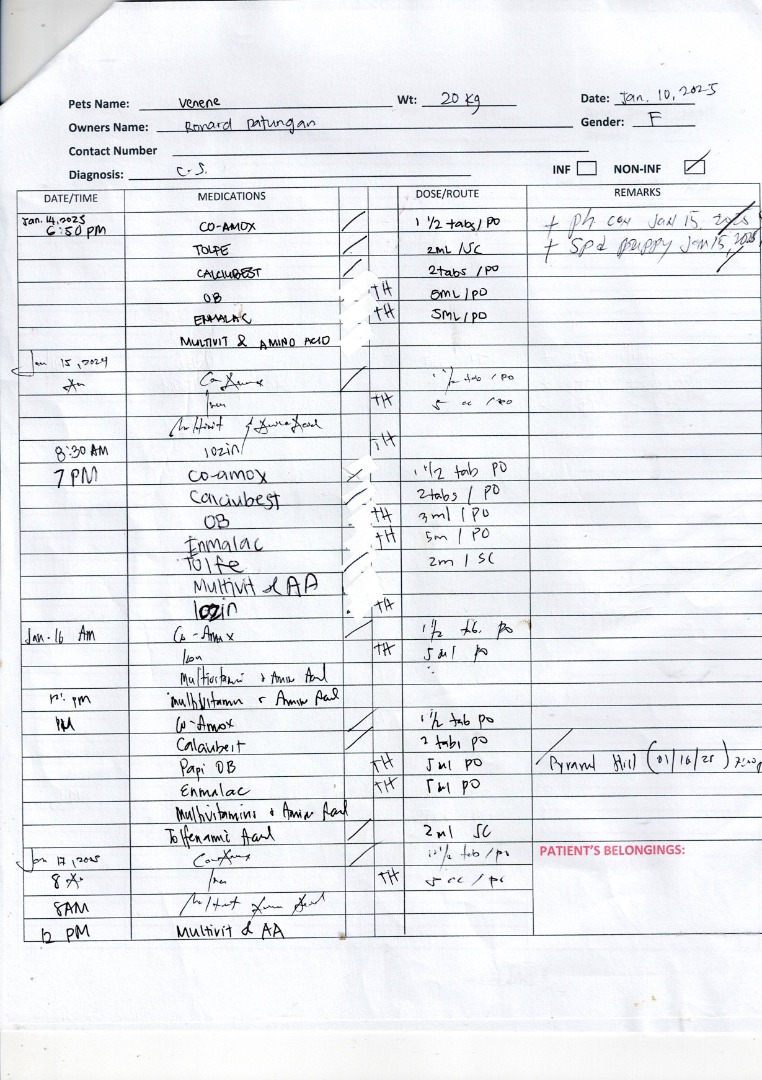 Pets Name: Venene Wt: 20 kg Date: Jan. 10, 2025
Owners Name: Ronard Patungan Gender: F
Contact Number
Diagnosis: C.S. INF NON-INF
DATE/TIME MEDICATIONS DOSE/ROUTE REMARKS
Jan. 14, 2025
6:50 PM CO-AMOX 1 1/2 tabs/PO + ph can Jan 15, 2025
TOLFE 2mL/SC + Spd puppy Jan 15, 2025
CALCIUBEST 2tabs/PO
OB TH 5mL/PO
ENMALAC TH 5ML/PO
MULTIVIT & AMINO ACID
Jan 15, 2024
1 1/2 tab/PO
TH 5 cc
8:30 AM 10zin TH
7 PM Co-amox 1 1/2 tab PO
Calciubest 2tabs / PO
OB TH 3ml / PO
Enmalac TH 5m / PO
Tolfe 2m / SC
Multivit & AA
10zin TH
Jan-16 Am Co-Amox 1 1/2 tb. po
Iron TH 5ml po
Multivitamin + Amin Acid
12: pm multivitamin + Amin Acid
PM Co-Amox 1 1/2 tab po
Calciubest 2 tabs po
Papi OB TH 5ml po
Enmalac TH 5ml PO
Multivitamins + Amin Acid
Tolfenamic Acid 2ml SC
Pyramd Hill (01/16/25)
Jan 17, 2025 1 1/2 tab/po
8 TH 5 cc/po
8AM
12 PM Multivit & AA
PATIENT'S BELONGINGS: